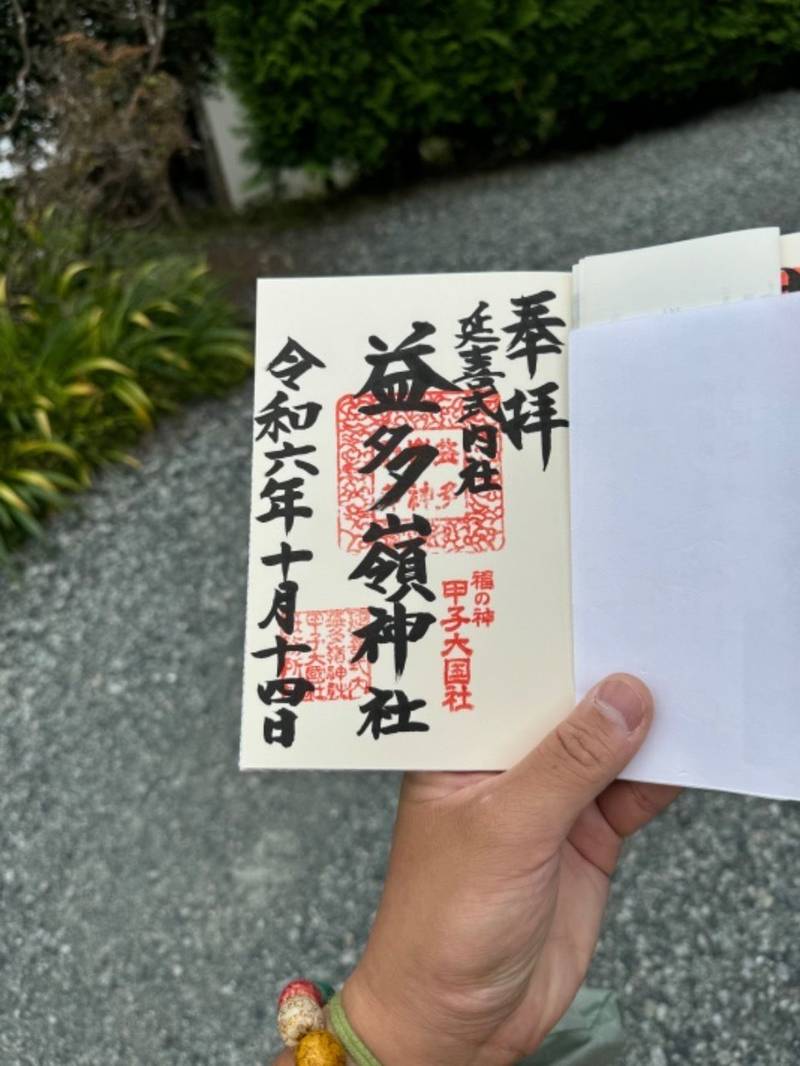 奉拝
延喜式内社
益多嶺神社
福の神
甲子大国社
令和六年十月十四日